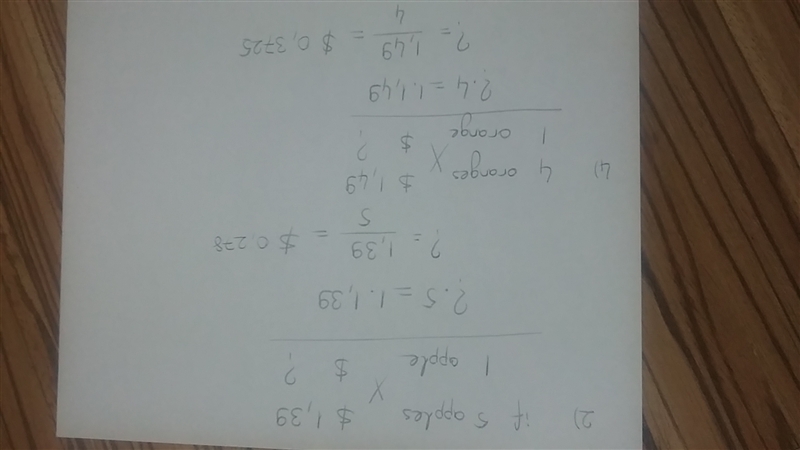 2) if 5 apples $ 1,39
X
1 apple $ ?
?.5 = 1.1,39
? = 1,39/5 = $ 0,278
4) 4 oranges $ 1,49
X
1 orange $ ?
?.4 = 1.1,49
? = 1,49/4 = $ 0,3725